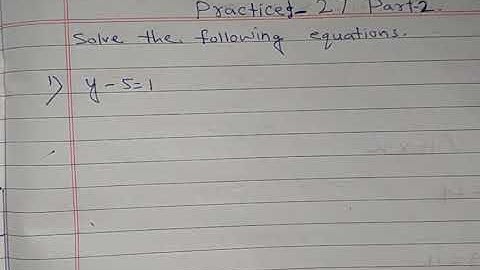 Practicet- 21 Part-2.
Solve the following equations.
1) y - 5 = 1